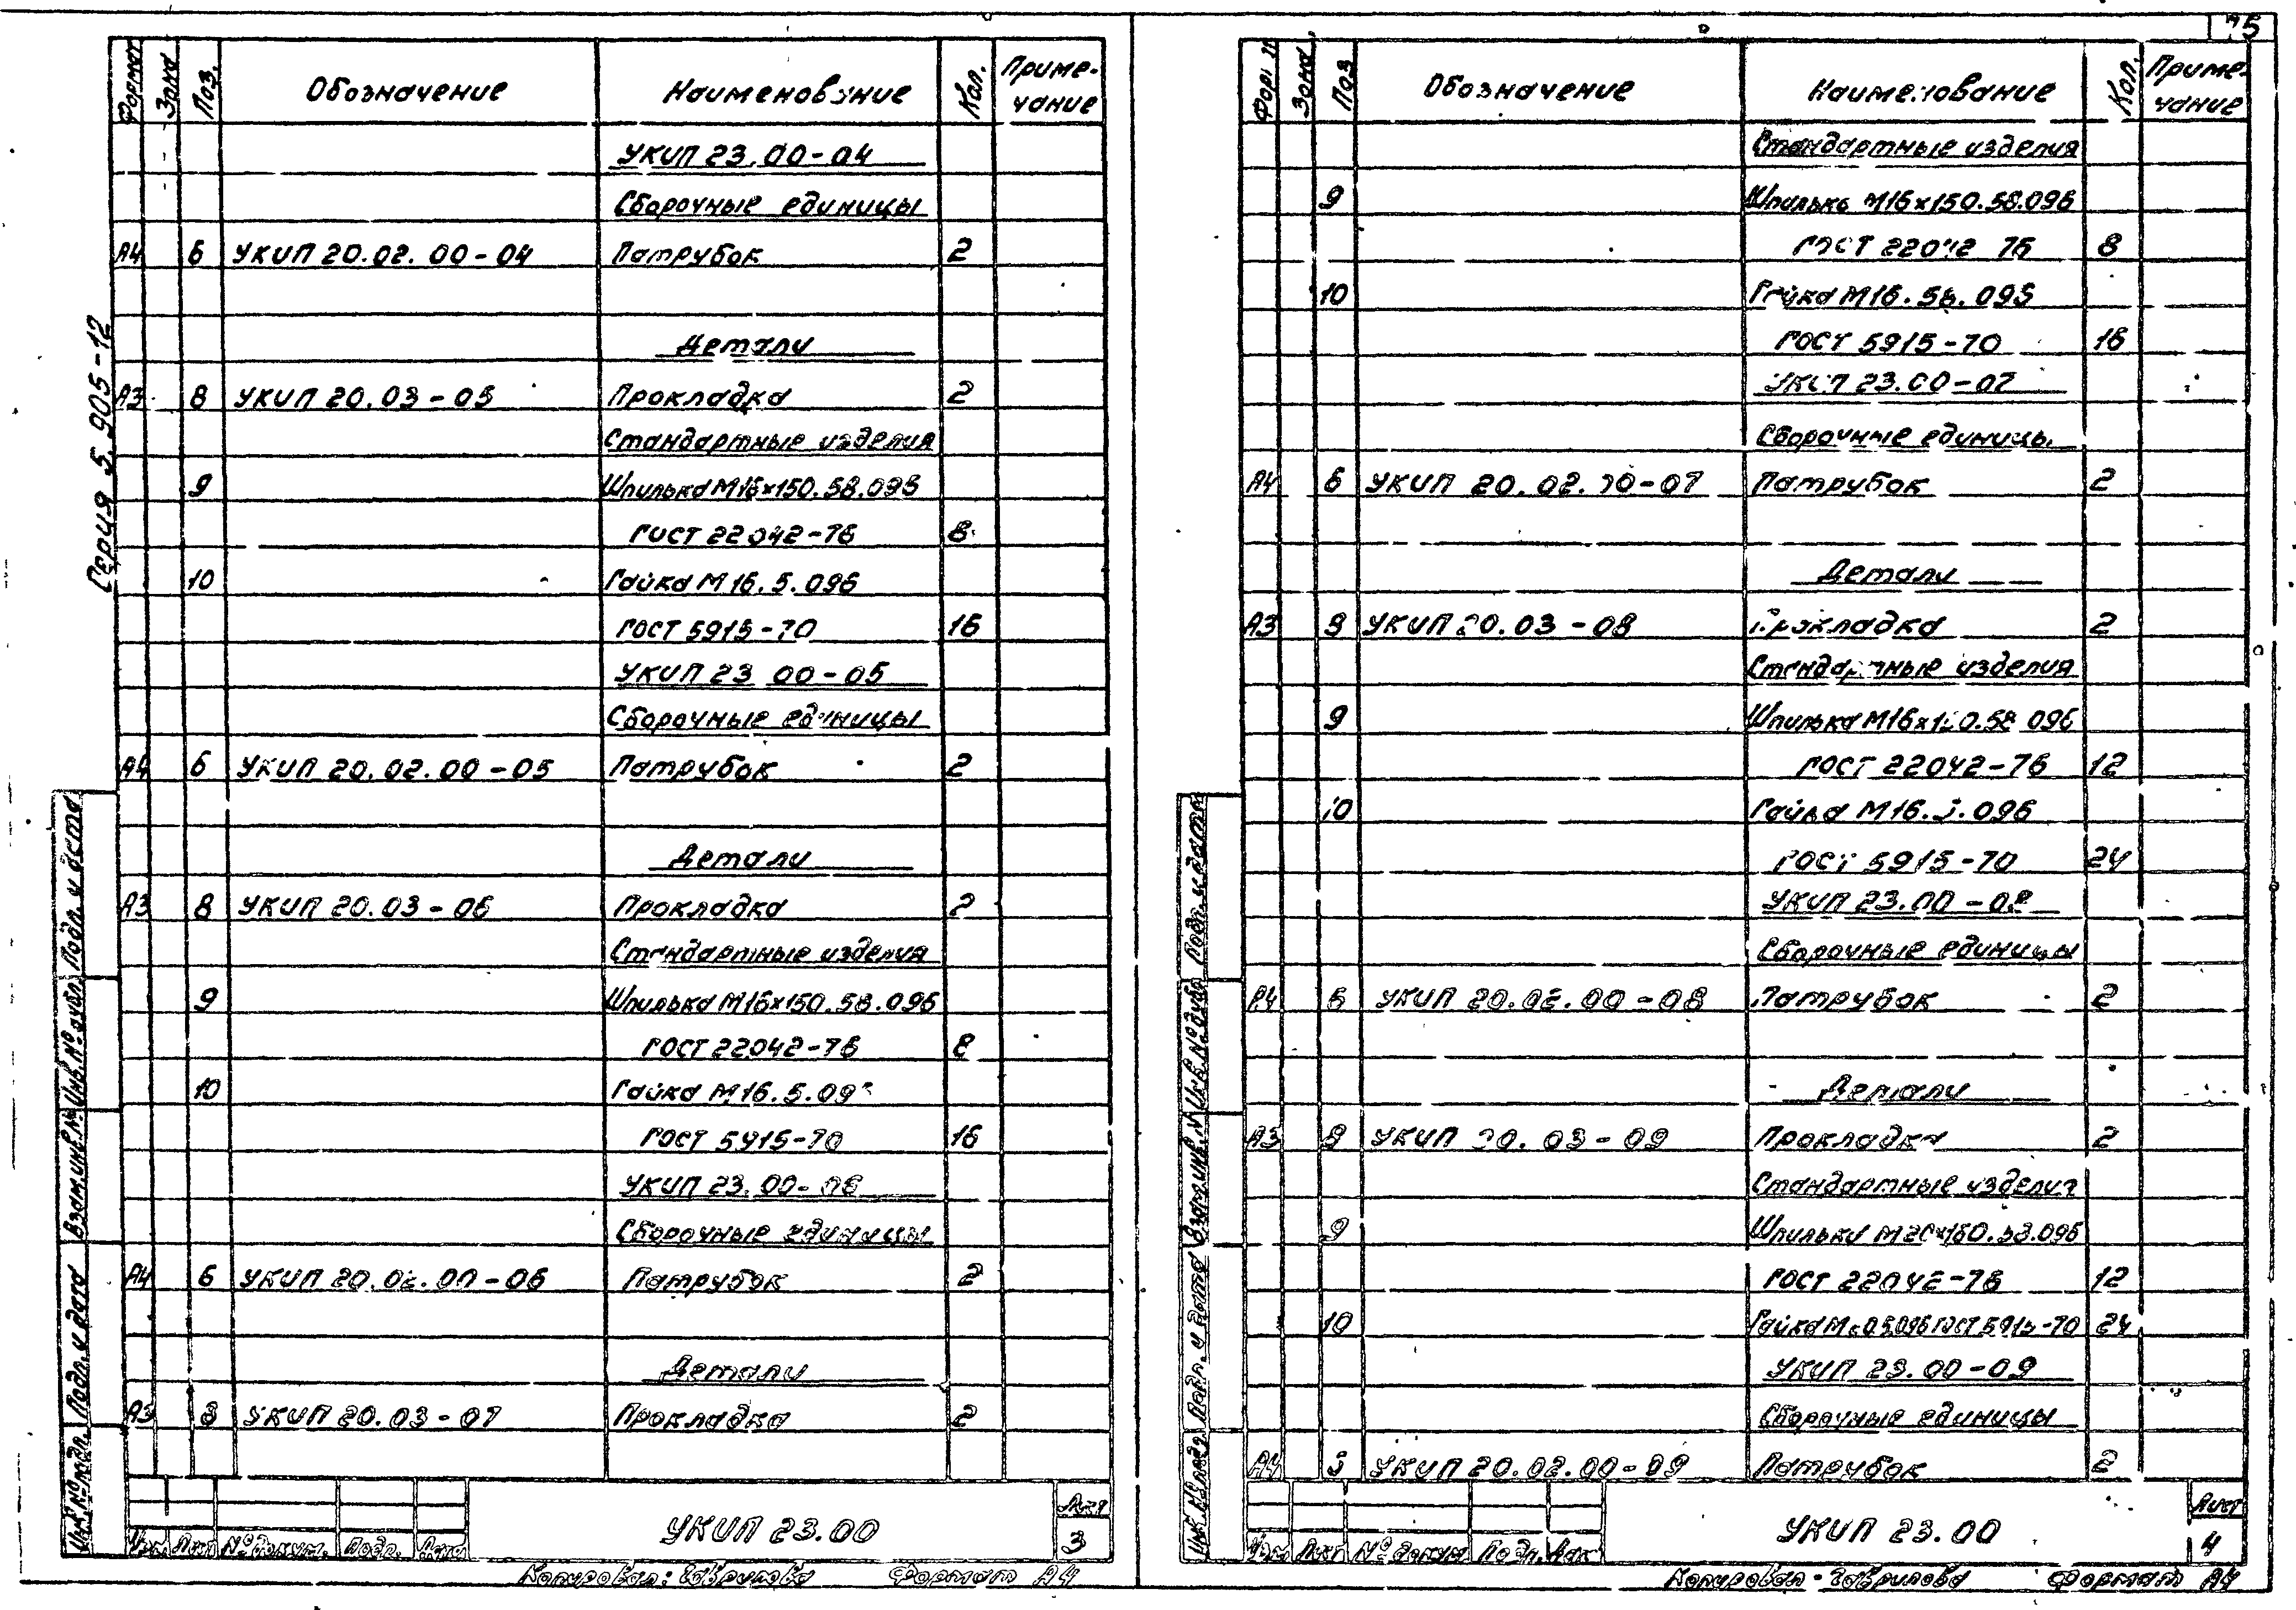 Формат Зона Поз. Обозначение Наименование Кол. Приме-
чание
УКИП 23.00-04
Сборочные единицы
А4 6 УКИП 20.02.00-04 Патрубок 2
Детали
А3 8 УКИП 20.03-05 Прокладка 2
Стандартные изделия
9 Шпилька М16×150.58.096
ГОСТ 22042-76 8
10 Гайка М16.5.096
ГОСТ 5915-70 16
УКИП 23 00-05
Сборочные единицы
А4 6 УКИП 20.02.00-05 Патрубок 2
Детали
А3 8 УКИП 20.03-06 Прокладка 2
Стандартные изделия
9 Шпилька М16×150.58.096
ГОСТ 22042-76 8
10 Гайка М16.5.09
ГОСТ 5915-70 16
УКИП 23.00-06
Сборочные единицы
А4 6 УКИП 20.02.00-06 Патрубок 2
Детали
А3 8 УКИП 20.03-07 Прокладка 2
Серия 5.905-12
Подп. и дата
Инв.№ дубл.
Взам.инв.№
Подп. и дата
Инв.№ подл.
Изм. Лист № докум. Подп. Дата
УКИП 23.00
Лист
3
Копировал: Гаврилова Формат А4
75
Формат Зона Поз Обозначение Наименование Кол. Приме-
чание
Стандартные изделия
9 Шпилька М16×150.58.096
ГОСТ 22042 76 8
10 Гайка М16.58.096
ГОСТ 5915-70 16
УКИП 23.00-07
Сборочные единицы
А4 6 УКИП 20.02.00-07 Патрубок 2
Детали
А3 8 УКИП 20.03-08 Прокладка 2
Стандартные изделия
9 Шпилька М16×150.58 096
ГОСТ 22042-76 12
10 Гайка М16.5.096
ГОСТ 5915-70 24
УКИП 23.00-08
Сборочные единицы
А4 6 УКИП 20.02.00-08 Патрубок 2
Детали
А3 8 УКИП 20.03-09 Прокладка 2
Стандартные изделия
9 Шпилька М20×160.58.096
ГОСТ 22042-76 12
10 Гайка М20.5.096 ГОСТ 5915-70 24
УКИП 23.00-09
Сборочные единицы
А4 6 УКИП 20.02.00-09 Патрубок 2
Подп. и дата
Инв.№ дубл.
Взам.инв.№
Подп. и дата
Инв.№ подл.
Изм Лист № докум Подп. Дата
УКИП 23.00
Лист
4
Копировал - Гаврилова Формат А4